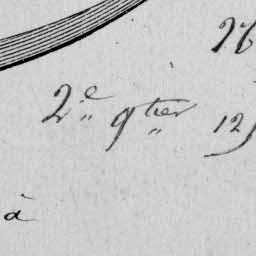 2e qtier 12
à